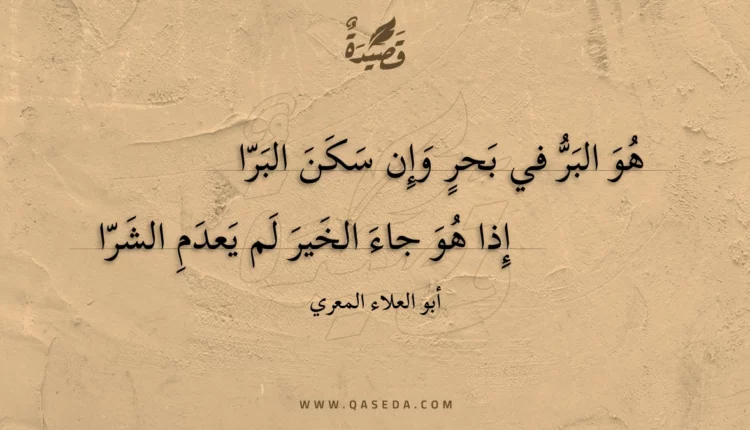 قَصِيْدَةٌ
هُوَ البَرُّ في بَحرٍ وَإِن سَكَنَ البَرّا
إِذا هُوَ جاءَ الخَيرَ لَم يَعدَمِ الشَرّا
أبو العلاء المعري
WWW.QASEDA.COM